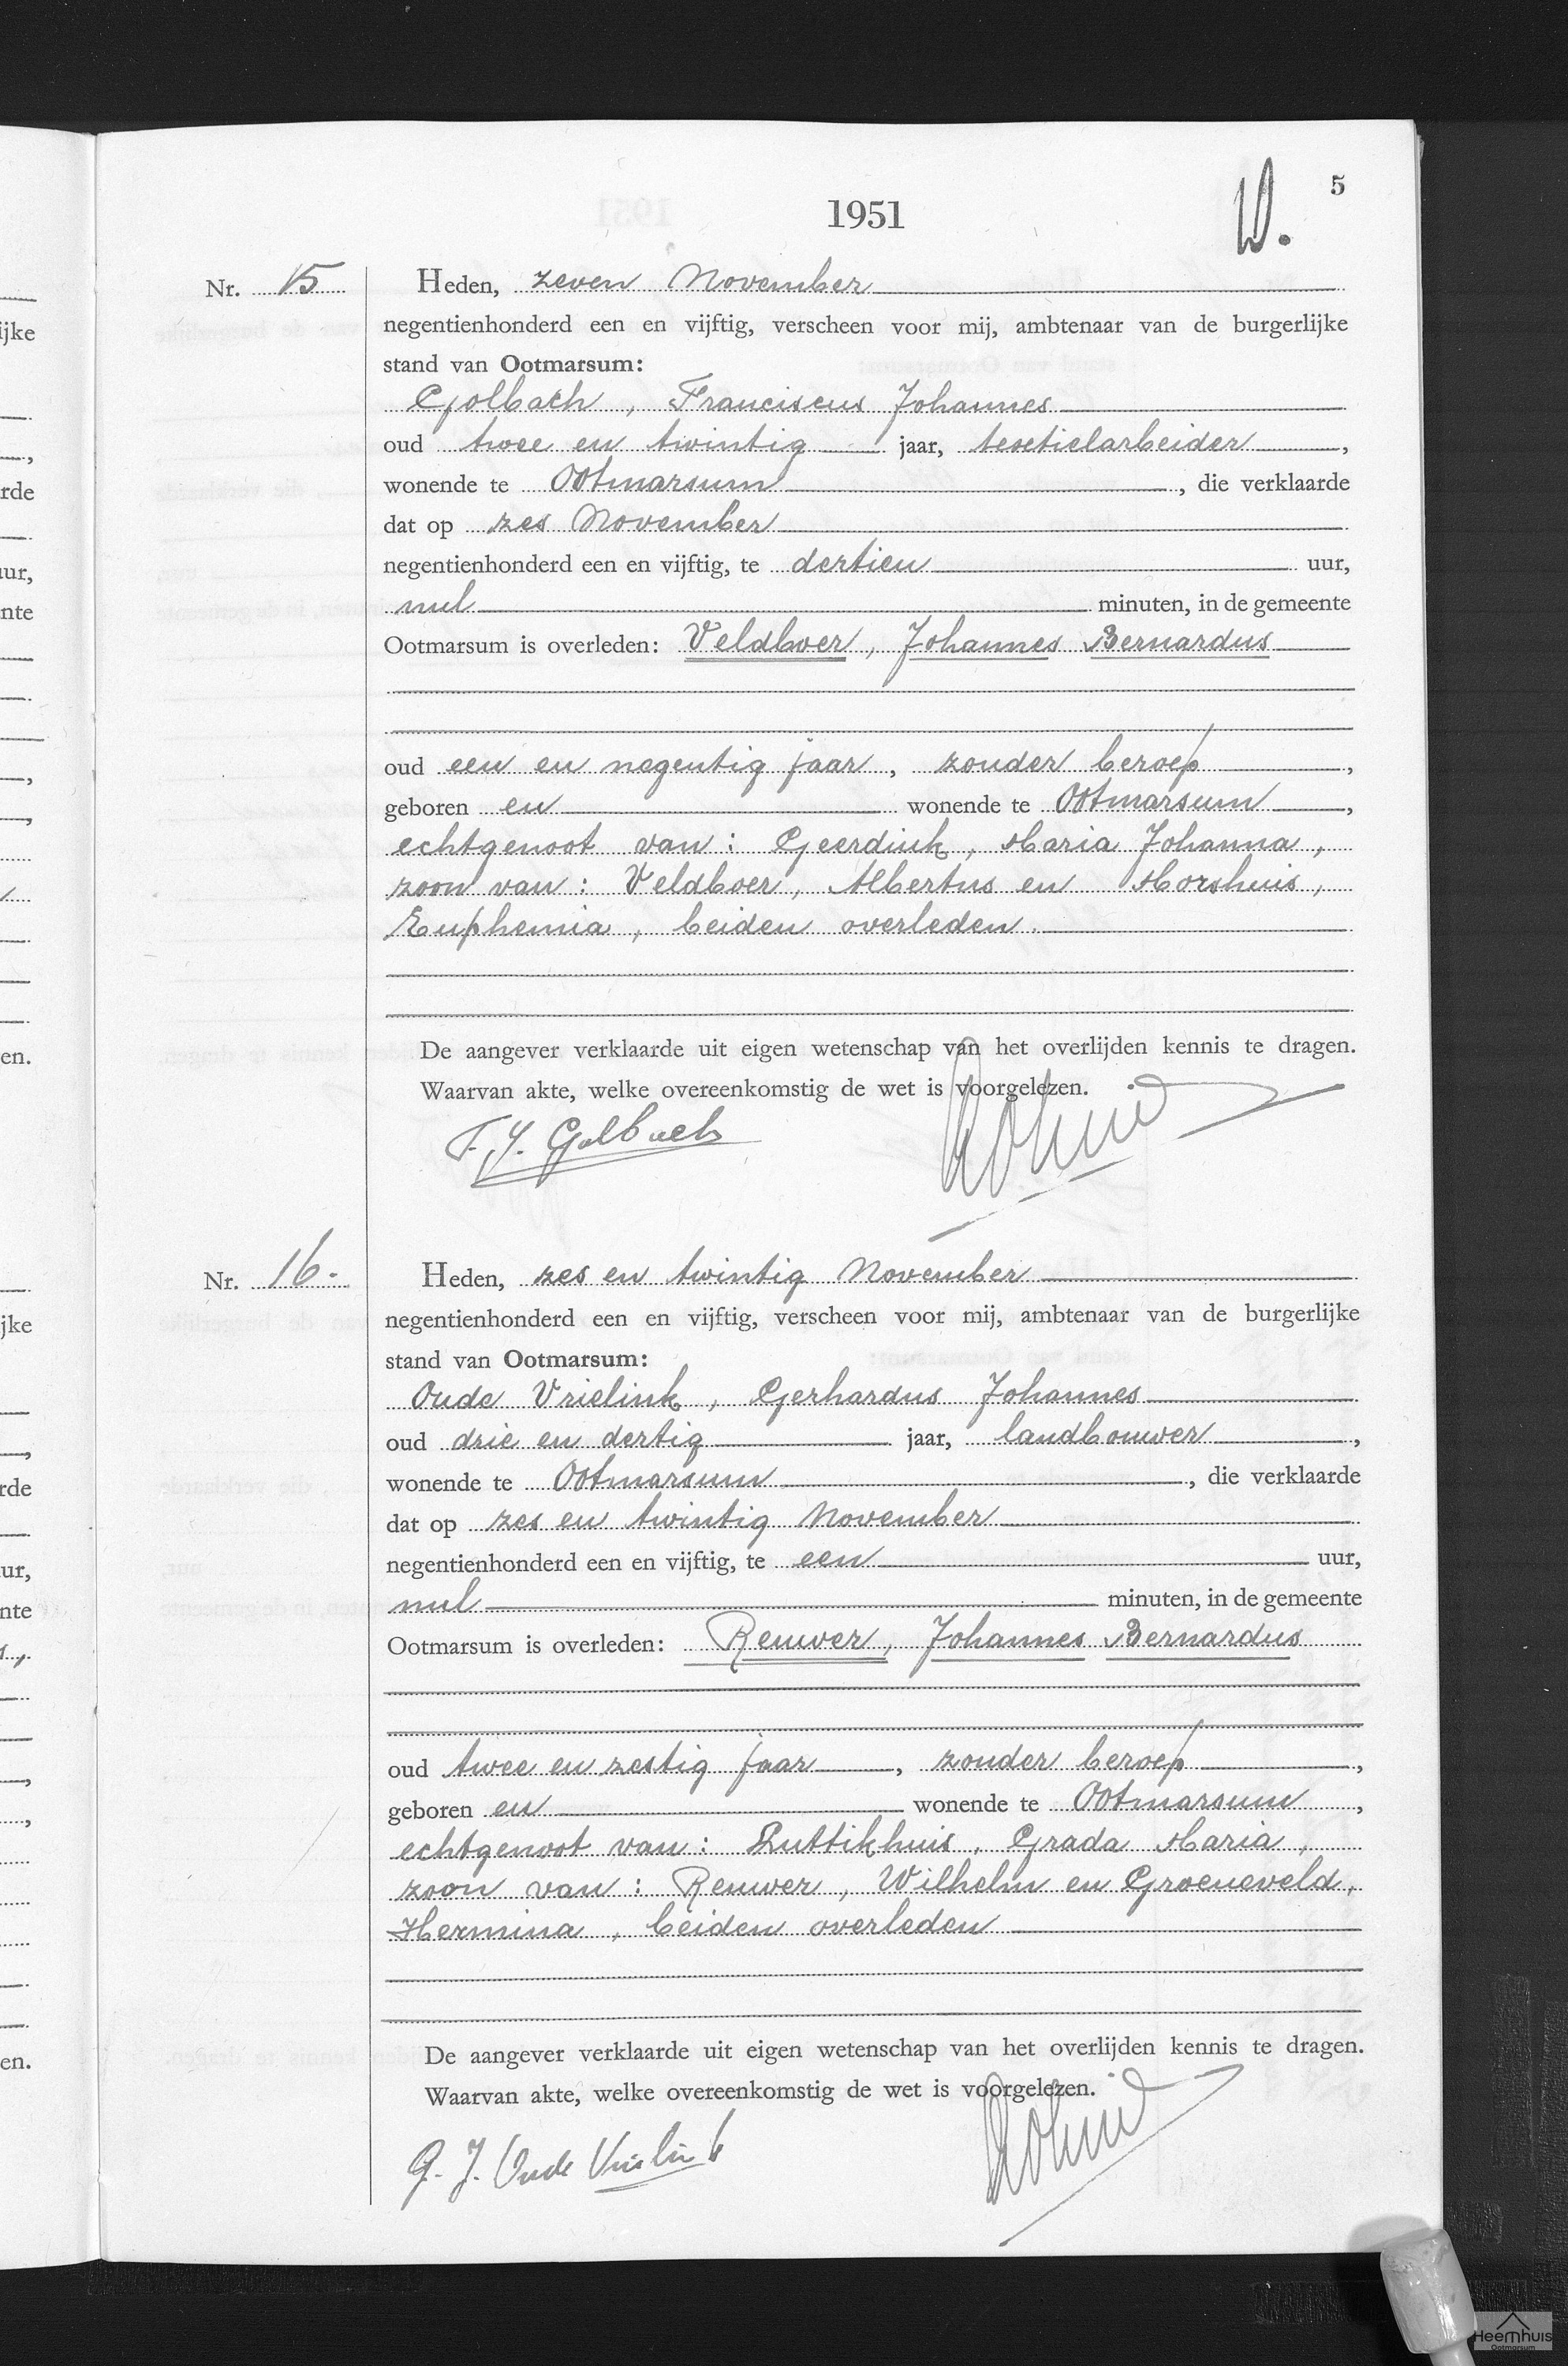 5
1951
Nr. 15
Heden, zeven November
negentienhonderd een en vijftig, verscheen voor mij, ambtenaar van de burgerlijke
stand van Ootmarsum:
Golbach, Franciscus Johannes
oud twee en twintig jaar, textielarbeider,
wonende te Ootmarsum, die verklaarde
dat op zes November
negentienhonderd een en vijftig, te dertien uur,
nul minuten, in de gemeente
Ootmarsum is overleden: Veldboer, Johannes Bernardus
oud een en negentig jaar, zonder beroep,
geboren en wonende te Ootmarsum,
echtgenoot van: Geerdink, Maria Johanna,
zoon van: Veldboer, Albertus en Morshuis,
Euphemia, beiden overleden.
De aangever verklaarde uit eigen wetenschap van het overlijden kennis te dragen.
Waarvan akte, welke overeenkomstig de wet is voorgelezen.
F. J. Golbach
Nr. 16.
Heden, zes en twintig November
negentienhonderd een en vijftig, verscheen voor mij, ambtenaar van de burgerlijke
stand van Ootmarsum:
Oude Vrielink, Gerhardus Johannes
oud drie en dertig jaar, landbouwer,
wonende te Ootmarsum, die verklaarde
dat op zes en twintig November
negentienhonderd een en vijftig, te een uur,
nul minuten, in de gemeente
Ootmarsum is overleden: Reuver, Johannes Bernardus
oud twee en zestig jaar, zonder beroep,
geboren en wonende te Ootmarsum,
echtgenoot van: Luttikhuis, Grada Maria,
zoon van: Reuver, Wilhelm en Groeneveld,
Hermina, beiden overleden
De aangever verklaarde uit eigen wetenschap van het overlijden kennis te dragen.
Waarvan akte, welke overeenkomstig de wet is voorgelezen.
G. J. Oude Vrielink
Heemhuis
Ootmarsum